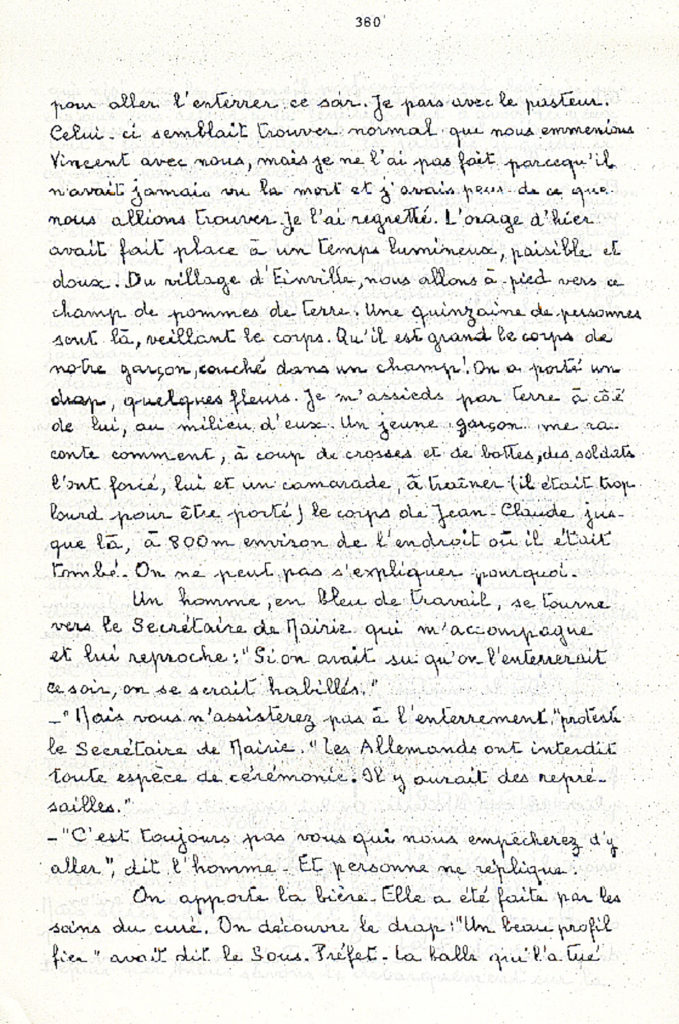 380
pour aller l'enterrer ce soir. Je pars avec le pasteur.
Celui-ci semblait trouver normal que nous emmenions
Vincent avec nous, mais je ne l'ai pas fait parcequ'il
n'avait jamais vu la mort et j'avais peur de ce que
nous allions trouver. Je l'ai regretté. L'orage d'hier
avait fait place à un temps lumineux, paisible et
doux. Du village d'Einville, nous allons à pied vers ce
champ de pommes de terre. Une quinzaine de personnes
sont là, veillant le corps. Qu'il est grand le corps de
notre garçon, couché dans un champ! On a porté un
drap, quelques fleurs. Je m'assieds par terre à côté
de lui, au milieu d'eux. Un jeune garçon me ra-
conte comment, à coup de crosses et de bottes, des soldats
l'ont forcé, lui et un camarade, à traîner (il était trop
lourd pour être porté) le corps de Jean-Claude jus-
que là, à 800m environ de l'endroit où il était
tombé. On ne peut pas s'expliquer pourquoi.
Un homme, en bleu de travail, se tourne
vers le Secrétaire de Mairie qui m'accompagne
et lui reproche: "Si on avait su qu'on l'enterrerait
ce soir, on se serait habillés."
-"Mais vous n'assisterez pas à l'enterrement," proteste
le Secrétaire de Mairie. "Les Allemands ont interdit
toute espèce de cérémonie. Il y aurait des repré-
sailles."
-"C'est toujours pas vous qui nous empêcherez d'y
aller", dit l'homme. Et personne ne réplique.
On apporte la bière. Elle a été faite par les
soins du curé. On découvre le drap: "Un beau profil
fier" avait dit le Sous-Préfet. La balle qui l'a tué